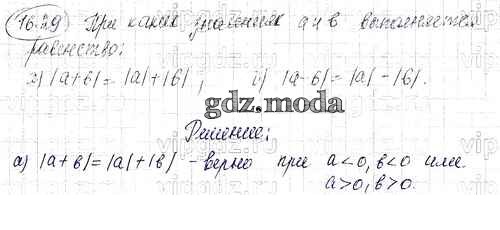 16.29 При каких значениях a и в выполняется
равенство:
а) |a+в| = |a|+|в| ; б) |a-в| = |a| - |в|.
gdz.moda
Решение:
а) |a+в|=|a|+|в| - верно при a<0, в<0 или
a>0, в>0.